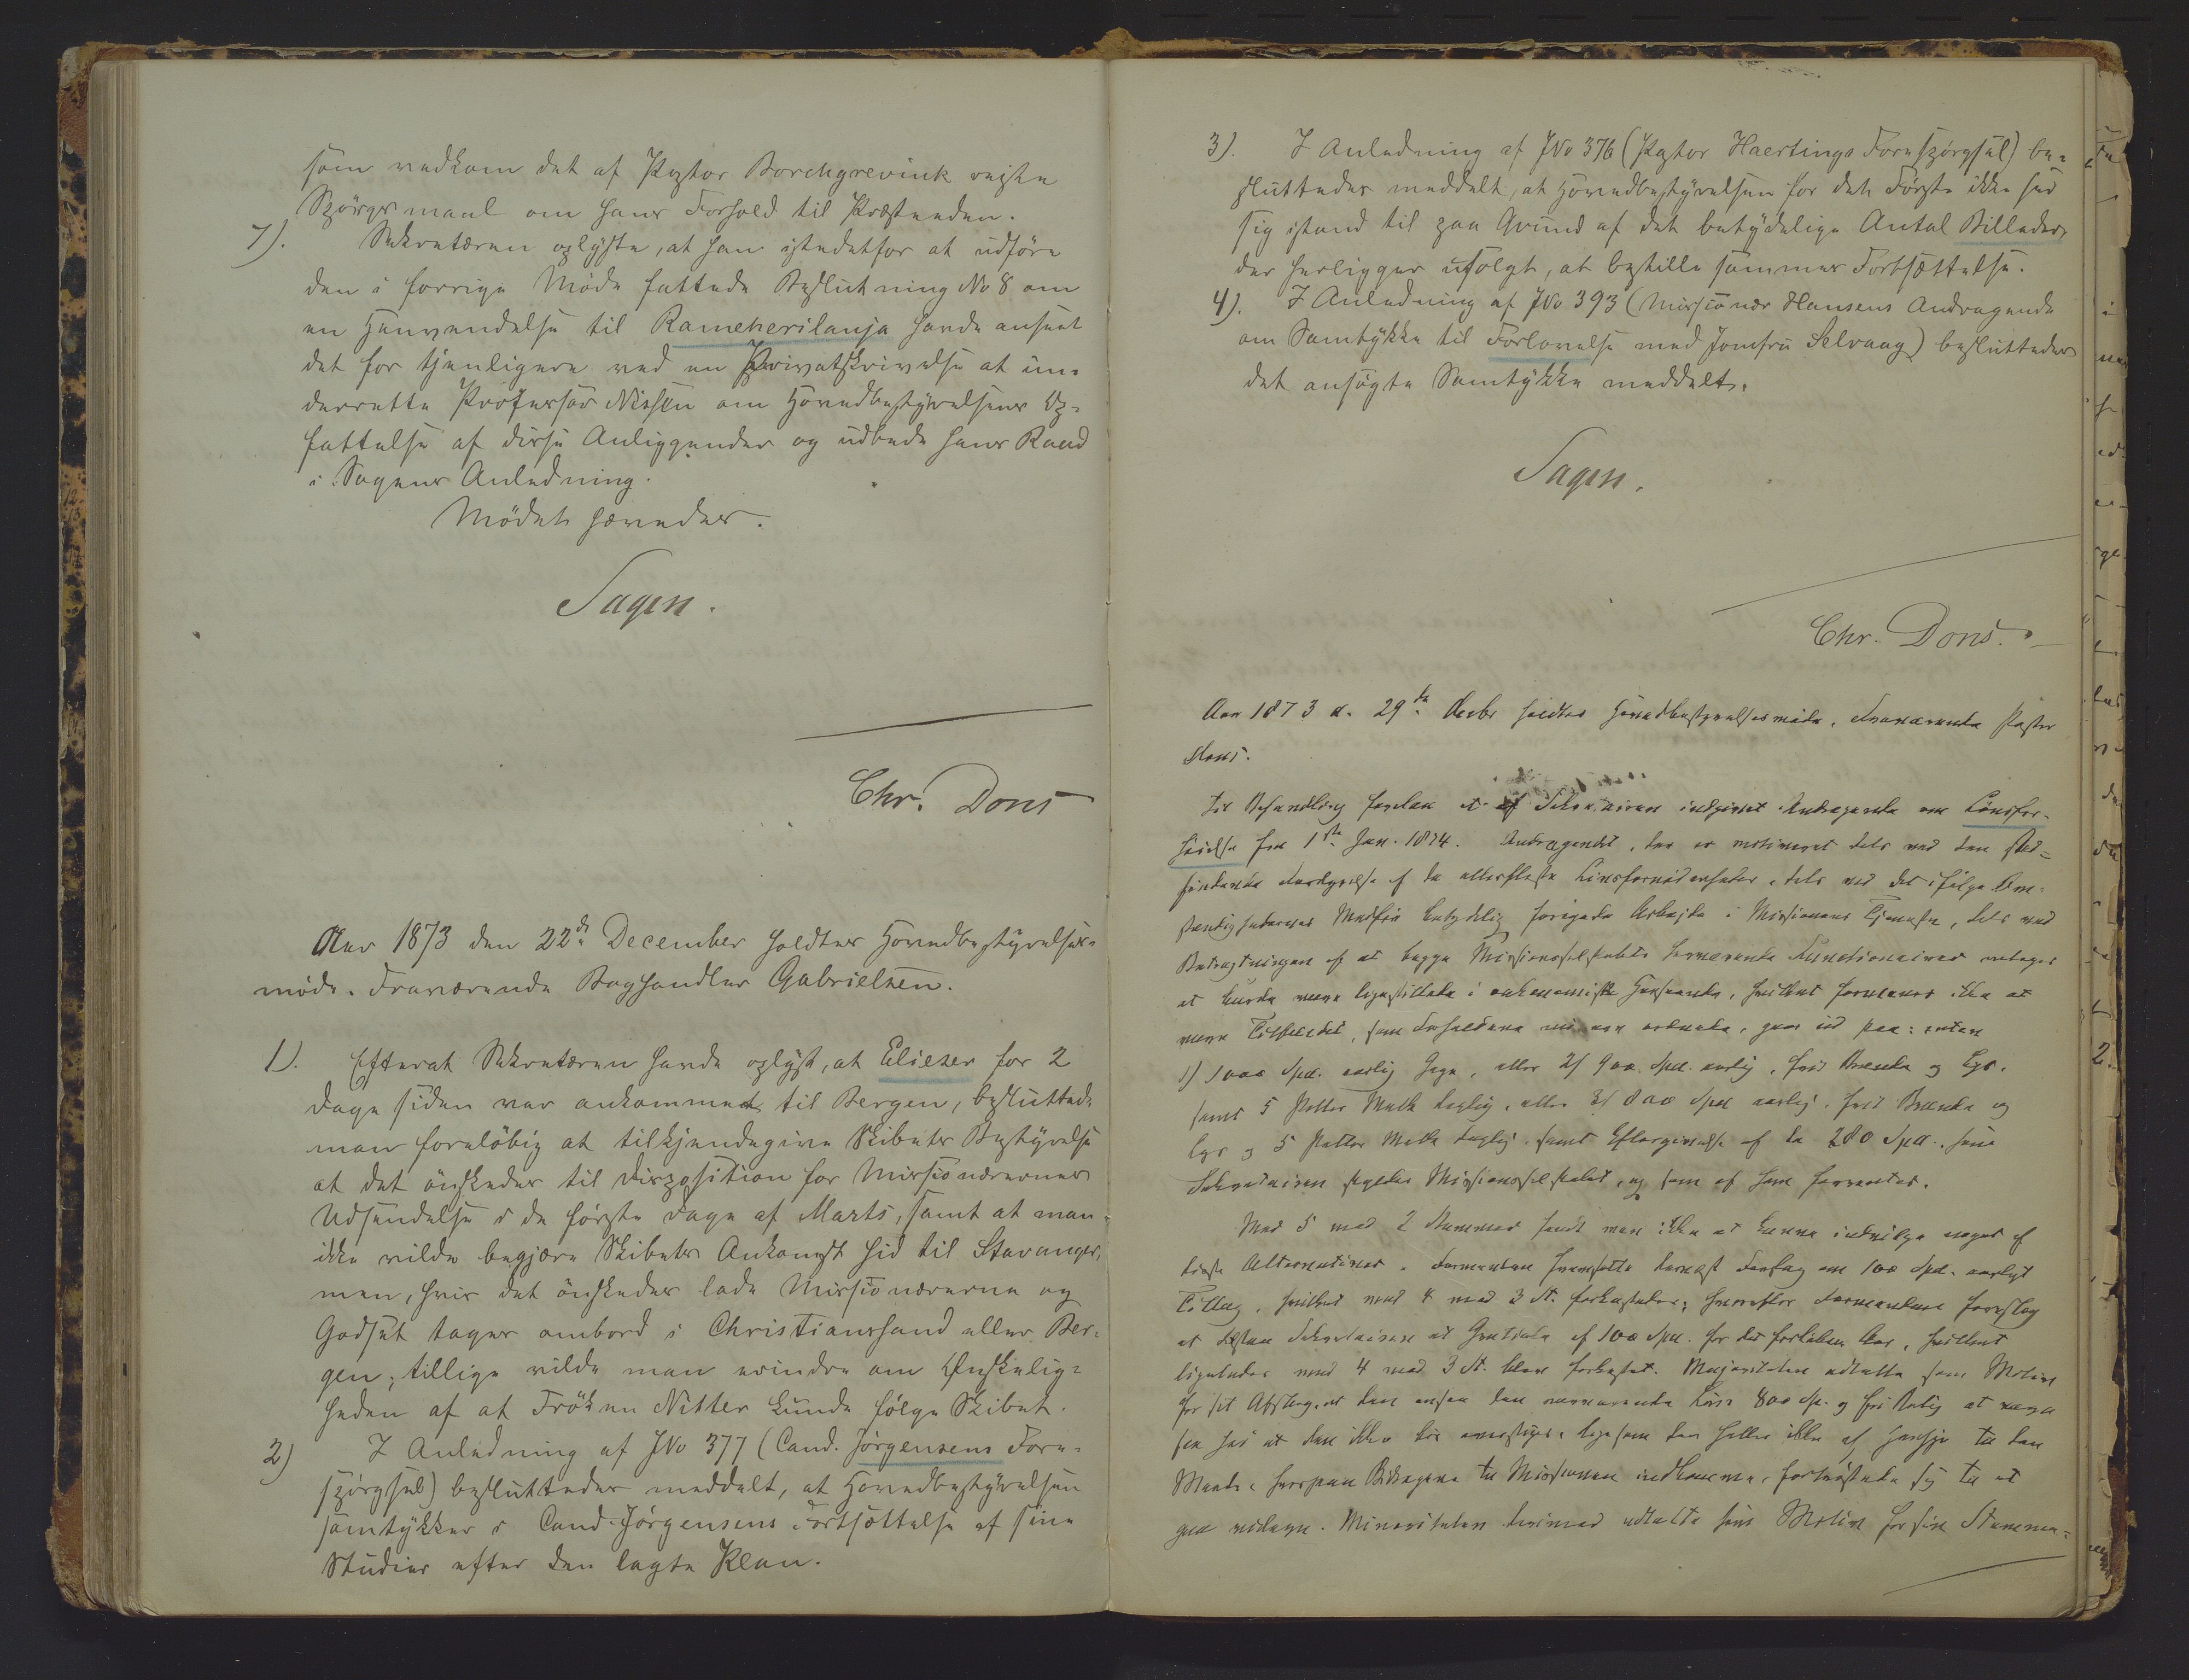 som vedkom det af Pastor Borchgrevink rejste
Spörgsmaal om hans Forhold til Præsteeden.
7). Sekretæren oplyste, at han istedetfor at udföre
den i forrige Möde fattede Beslutning No 8 om
en Henvendelse til Rameherilanja havde anseet
det for tjenligere ved en Privatskrivelse at un-
derrette Professor Nissen om Hovedbestyrelsens Op-
fattelse af disse Anliggender og udbede hans Raad
i Sagens Anledning.
Mödet hævedes.
Sagen.
Chr. Dons
Aar 1873 den 22de December holdtes Hovedbestyrelses-
möde. Fraværende Boghandler Gabrielsen.
1). Efterat Sekretæren havde oplyst, at Elieser for 2
Dage siden var ankommet til Bergen, besluttede
man forelöbig at tilkjendegive Skibets Bestyrelse
at det önskedes til Disposition for Missionærernes
Udsendelse i de förste Dage af Marts, samt at man
ikke vilde begjære Skibets Ankomst hid til Stavanger,
men, hvis det önskedes lade Missionærerne og
Godset tages ombord i Christianssand eller Ber-
gen; tillige vilde man erindre om Önskelig-
heden af at Fröken Nitter kunde fölge Skibet.
2) I Anledning af JNo 377 (Cand. Jörgensens Fore-
spörgsel) besluttedes meddelt, at Hovedbestyrelsen
samtykker i Cand. Jörgensens Fortsættelse af sine
Studier efter den lagte Plan.
3). I Anledning af JNo 376 (Pastor Haertings Forespörgsel) be-
sluttedes meddelt, at Hovedbestyrelsen for det Förste ikke ser
sig istand til paa Grund af det betydelige Antal Billeder,
der henligger usolgt, at bestille sammes Fortsættelse.
4). I Anledning af JNo 393 (Missionær Hansens Andragende
om Samtykke til Forlovelse med Jomfru Selvaag) besluttedes
det ansögte Samtykke meddelt.
Sagen.
Chr. Dons.
Aar 1873 d. 29de Decbr holdtes Hovedbestyrelsesmöde. Fraværende Pastor
Dons.
Til Behandling forelaa et af Sekretæren indgivet Andragende om Lönsfor-
höielse fra 1ste Jan. 1874. Andragendet, der er motiveret dels ved den sted-
findende Fordyrelse af de allerfleste Livsfornödenheder, dels ved det ifölge Om-
stændighedernes Medför betydelig forögede Arbejde i Missionens Tjeneste, dels ved
Betragtningen af at begge Missionsselskabets Functionairer antages
at burde være ligestillede i oekonomisk Henseende, hvilket formenes ikke at
være Tilfældet, som Forholdene nu ere ordnede, gaar ud paa: enten
1) 1000 Spd. aarlig Gage, eller 2) 900 Spd. aarlig, frit Brænde og Lys,
samt 5 Potter Melk daglig, eller 3) 800 Spd aarlig, frit Brænde og
Lys og 5 Potter Melk daglig, samt Eftergivelse af de 280 Spd., som
Sekretairen skylder Missionsselskabet, og som af ham forrentes.
Med 5 mod 2 Stemmer fandt man ikke at kunne indvilge noget af
disse Alternativer. Formanden fremsatte dernæst Forslag om 100 Spd. aarligt
Tillæg, hvilket med 4 mod 3 St. forkastedes; hvorefter Formanden foreslog
at tilstaa Sekretairen et Gratiale af 100 Spd. for det forløbne Aar, hvilket
ligeledes med 4 mod 3 St. blev forkastet. Majoriteten udtalte som Motiv
for sit Afslag, at den ansaa den nuværende Lön 800 Sp. og fri Bolig at være
saa höi at den ikke bör overstiges, ligesom den heller ikke af Hensyn til den
Maade, hvorpaa Bidragene til Missionen indkomme, fortröstede sig til at
gaa videre. Minoriteten derimod udtalte som Motiv for sin Stemme-